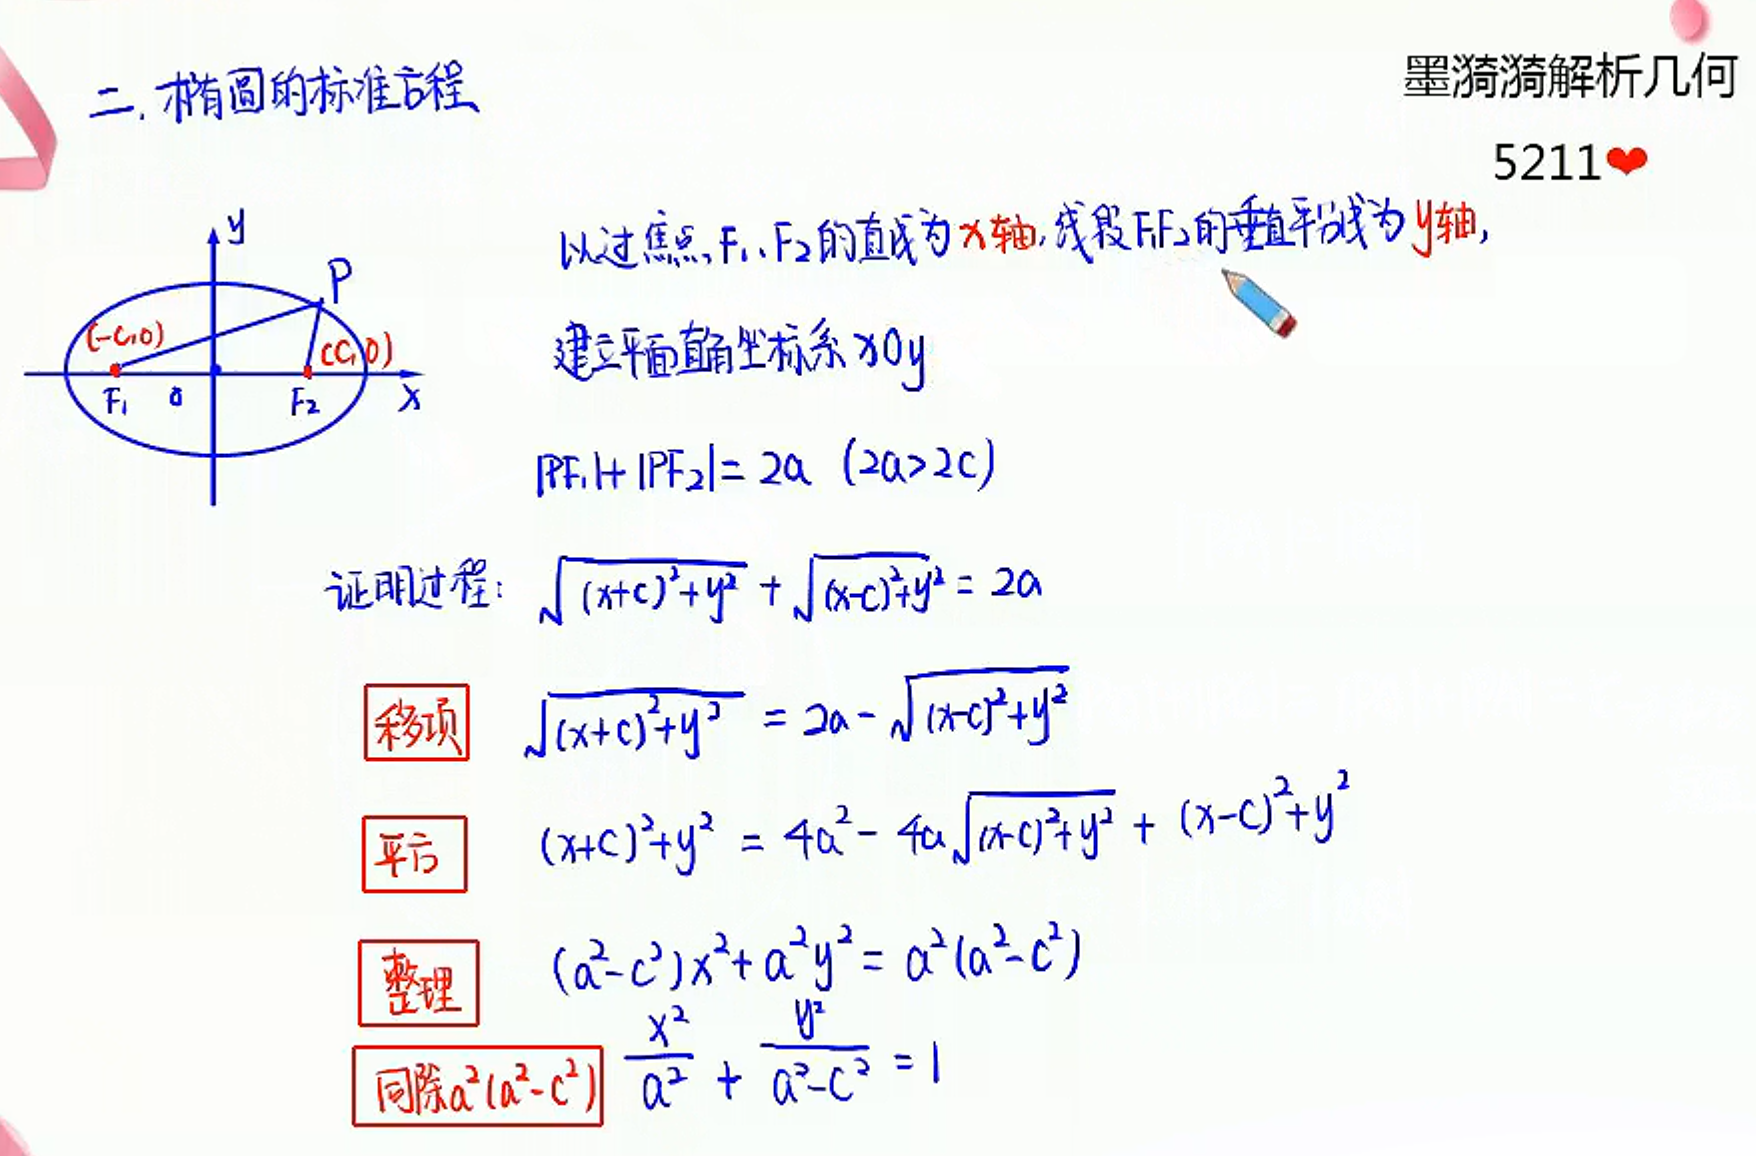 墨漪漪解析几何
5211❤
二.椭圆的标准方程
y
P
(-c,0)
(c,0)
F₁ 0 F₂ x
以过焦点F₁、F₂的直线为x轴,线段F₁F₂的垂直平分线为y轴,
建立平面直角坐标系xOy
|PF₁|+|PF₂|=2a (2a>2c)
证明过程: √((x+c)²+y²) + √((x-c)²+y²) = 2a
移项 √((x+c)²+y²) = 2a - √((x-c)²+y²)
平方 (x+c)²+y² = 4a² - 4a√((x-c)²+y²) + (x-c)²+y²
整理 (a²-c²)x²+a²y² = a²(a²-c²)
同除a²(a²-c²) x²/a² + y²/(a²-c²) = 1